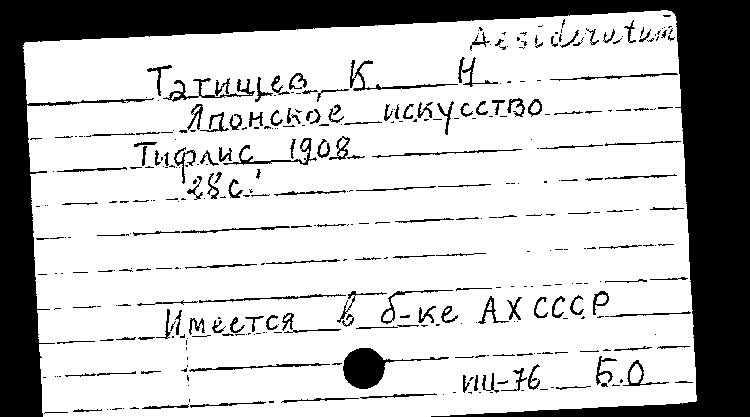 Desideratum
Татищев, К. Н.
Японское искусство
Тифлис 1908
28с.
Имеется в б-ке АХ СССР
VIII-76 Б.О